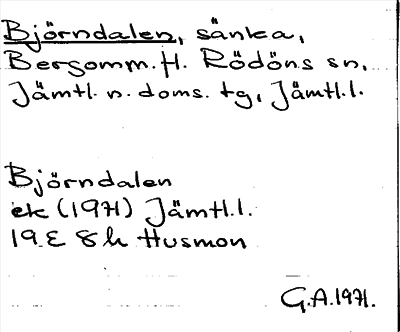 Björndalen, sänka,
Bergomm. fl. Rödöns sn,
Jämtl. n. doms. tg, Jämtl.l.
Björndalen
ek (1971) Jämtl.l.
19E 8h Husmon
G.A.1971.